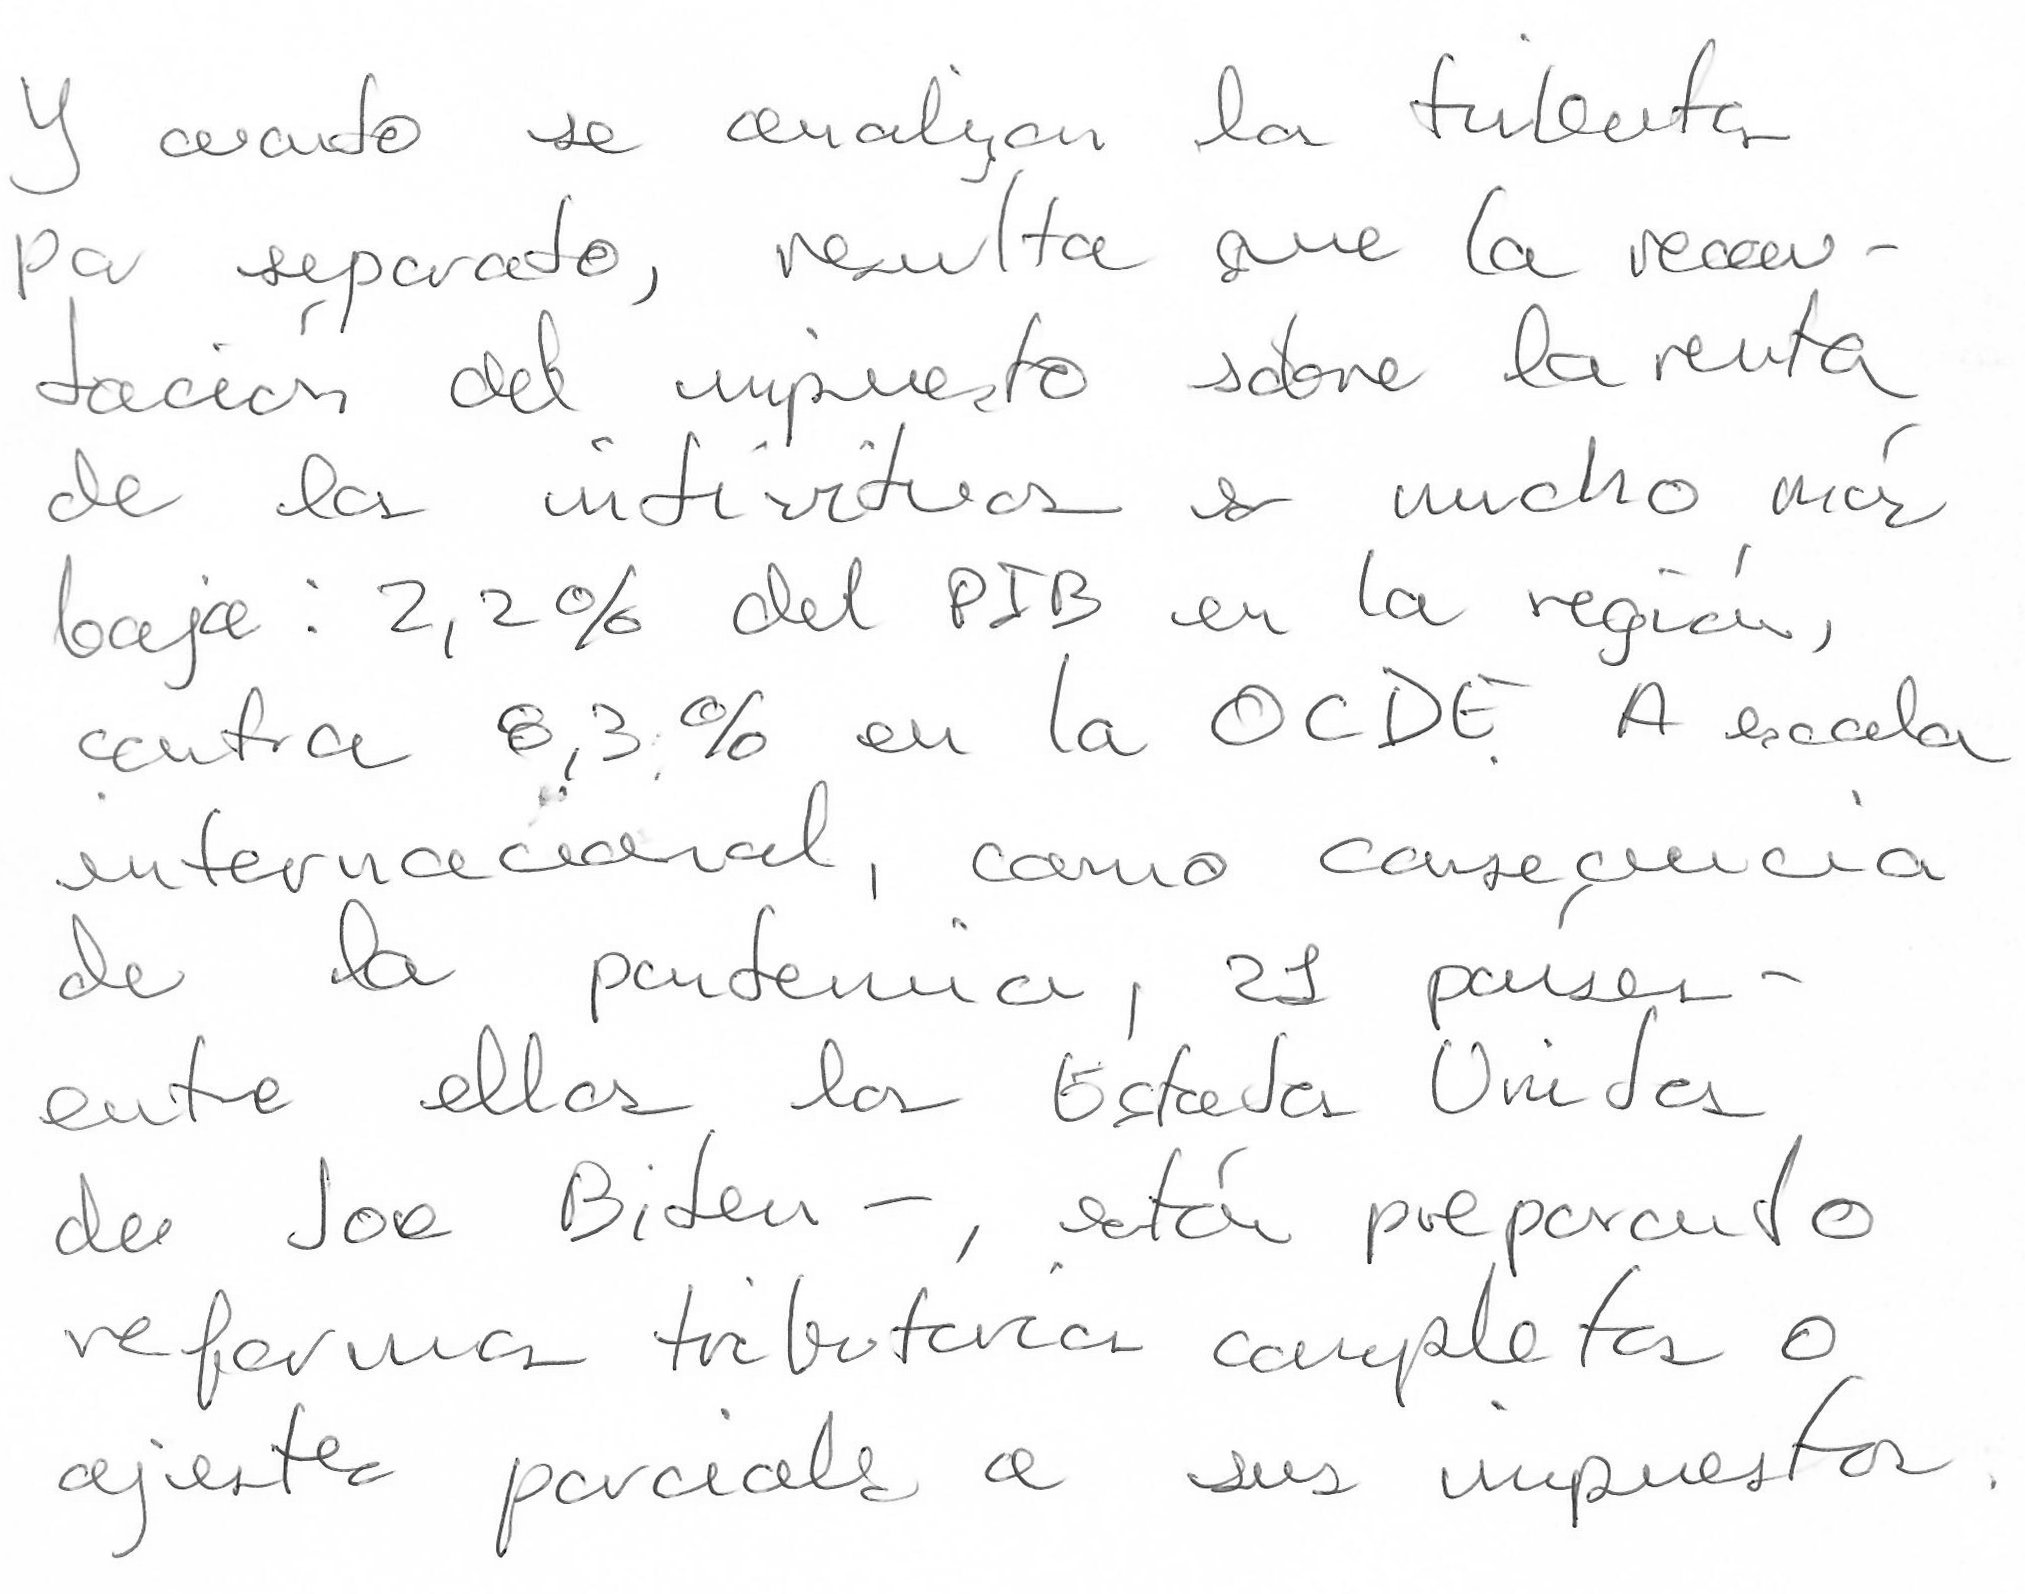 Y cuando se analizan los tributos
por separado, resulta que la recau-
dación del impuesto sobre la renta
de los individuos es mucho más
baja: 2,2% del PIB en la región,
contra 8,3% en la OCDE. A escala
internacional, como consecuencia
de la pandemia, 21 países -
entre ellos los Estados Unidos
de Joe Biden -, están preparando
reformas tributarias completas o
ajustes parciales a sus impuestos.